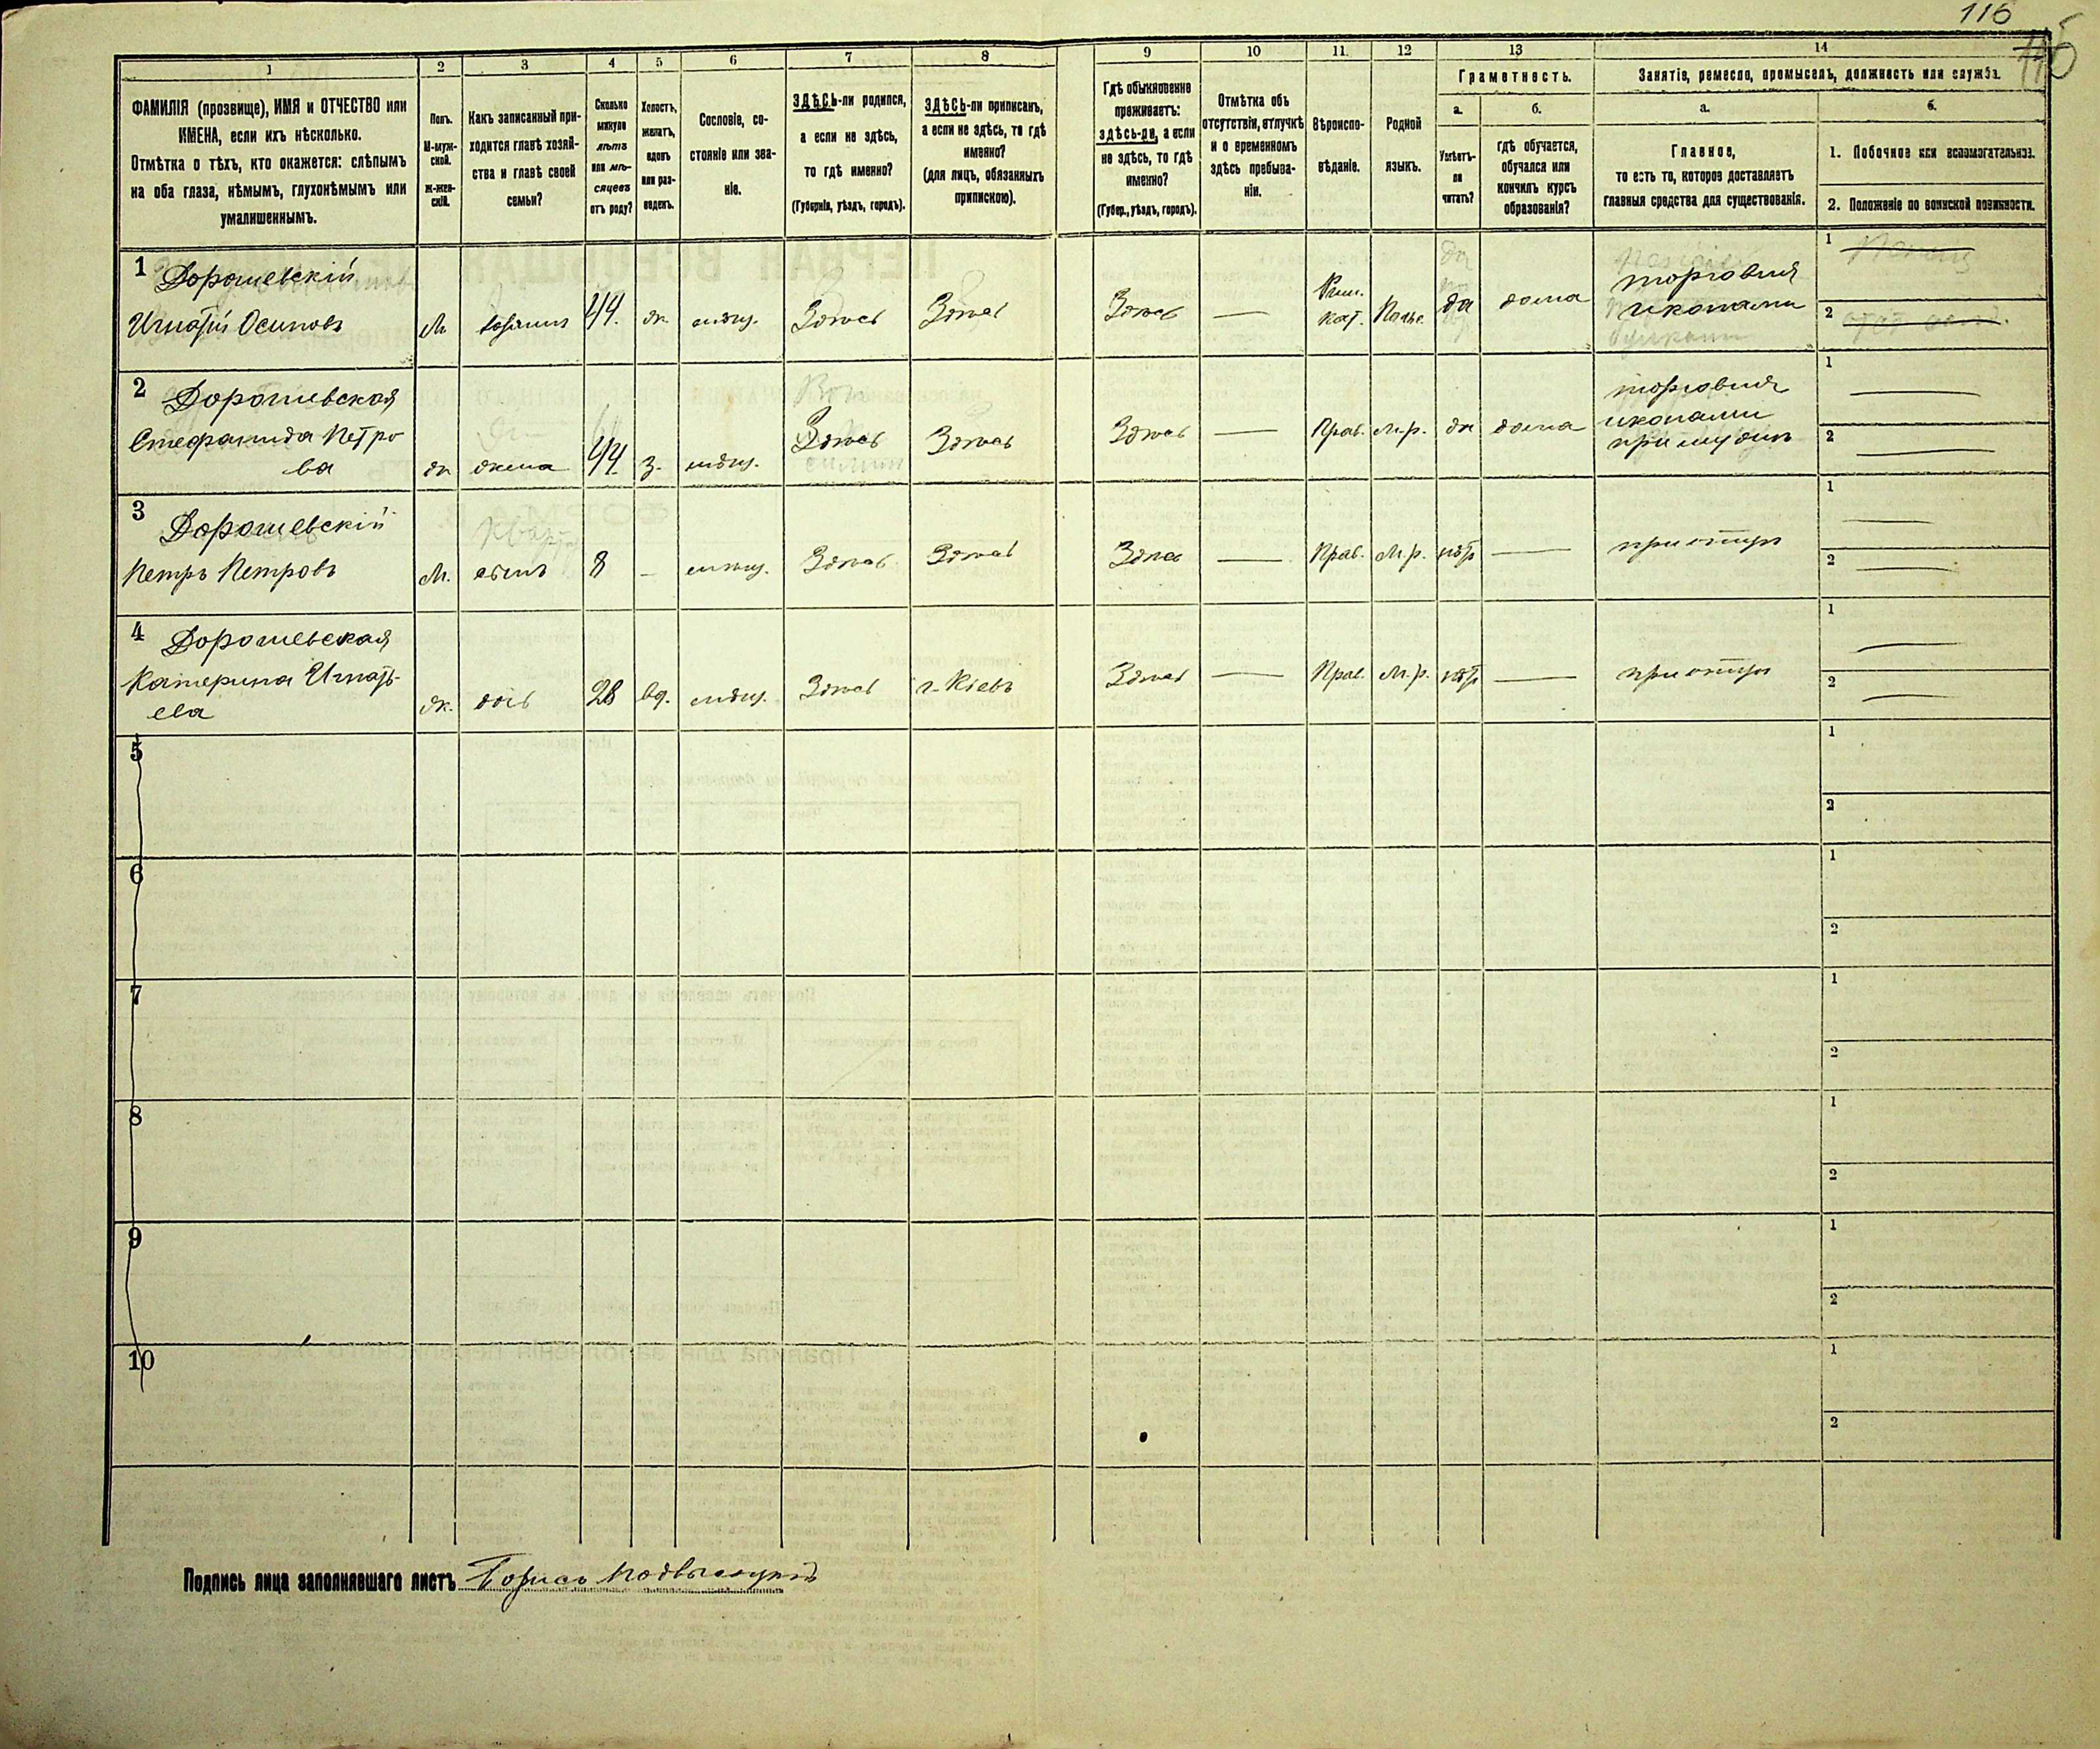 116
115
1
2
3
4
5
6
7
8
9
10
11.
12
13
14
ФАМИЛІЯ (прозвище), ИМЯ и ОТЧЕСТВО или
ИМЕНА, если ихъ нѣсколько.
Отмѣтка о тѣхъ, кто окажется: слѣпымъ
на оба глаза, нѣмымъ, глухонѣмымъ или
умалишеннымъ.
Полъ.
М-муж-
ской.
Ж-жен-
скій.
Какъ записанный при-
ходится главѣ хозяй-
ства и главѣ своей
семьи?
Сколько
минуло
лѣтъ
или мѣ-
сяцевъ
отъ роду?
Холостъ,
женатъ,
вдовъ
или раз-
веденъ.
Сословіе, со-
стояніе или зва-
ніе.
ЗДѢСЬ-ли родился,
а если не здѣсь,
то гдѣ именно?
(Губернія, уѣздъ, городъ).
ЗДѢСЬ-ли приписанъ,
а если не здѣсь, то гдѣ
именно?
(для лицъ, обязанныхъ
припискою).
Гдѣ обыкновенно
проживаетъ:
здѣсь-ли, а если
не здѣсь, то гдѣ
именно?
(Губер., уѣздъ, городъ).
Отмѣтка объ
отсутствіи, отлучкѣ
и о временномъ
здѣсь пребыва-
ніи.
Вѣроиспо-
вѣданіе.
Родной
языкъ.
Грамотность.
а.
б.
Умѣетъ-
ли
читать?
гдѣ обучается,
обучался или
кончилъ курсъ
образованія?
Занятіе, ремесло, промыселъ, должность или служба.
а.
б.
Главное,
то есть то, которое доставляетъ
главныя средства для существованія.
1. Побочное или вспомогательное.
2. Положеніе по воинской повинности.
1 Дорошевскій
Игнатій Осиповъ
М. хозяинъ 44. ж. мѣщ. Здѣсь Здѣсь Здѣсь — Рим. кат. Польс. да дома торговля иконами
1
2
2 Дорошевская
Стефанида Петро
ва
ж жена 44 з. мѣщ. Здѣсь Здѣсь Здѣсь — Прав. М.р. да дома торговля иконами при мужѣ
1 —
2 —
3 Дорошевскій
Петръ Петровъ
М. сынъ 8 — мѣщ. Здѣсь Здѣсь Здѣсь — Прав. М.р. нѣтъ — при отцѣ
1 —
2 —
4 Дорошевская
Катерина Игнать-
ева
ж. дочь 28 вд. мѣщ. Здѣсь г. Кіевъ Здѣсь — Прав. М.р. нѣтъ — при отцѣ
1 —
2 —
5
1
2
6
1
2
7
1
2
8
1
2
9
1
2
10
1
2
Подпись лица заполнявшаго листъ Борисъ Подвысоцкій